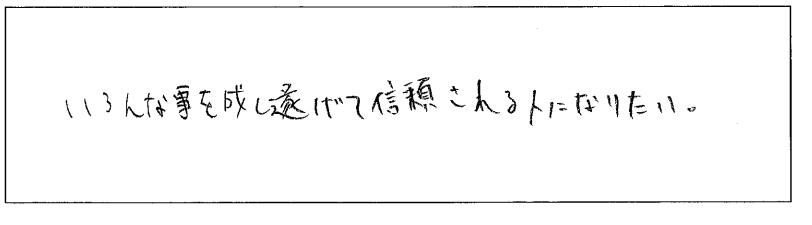 いろんな事を成し遂げて信頼される人になりたい。